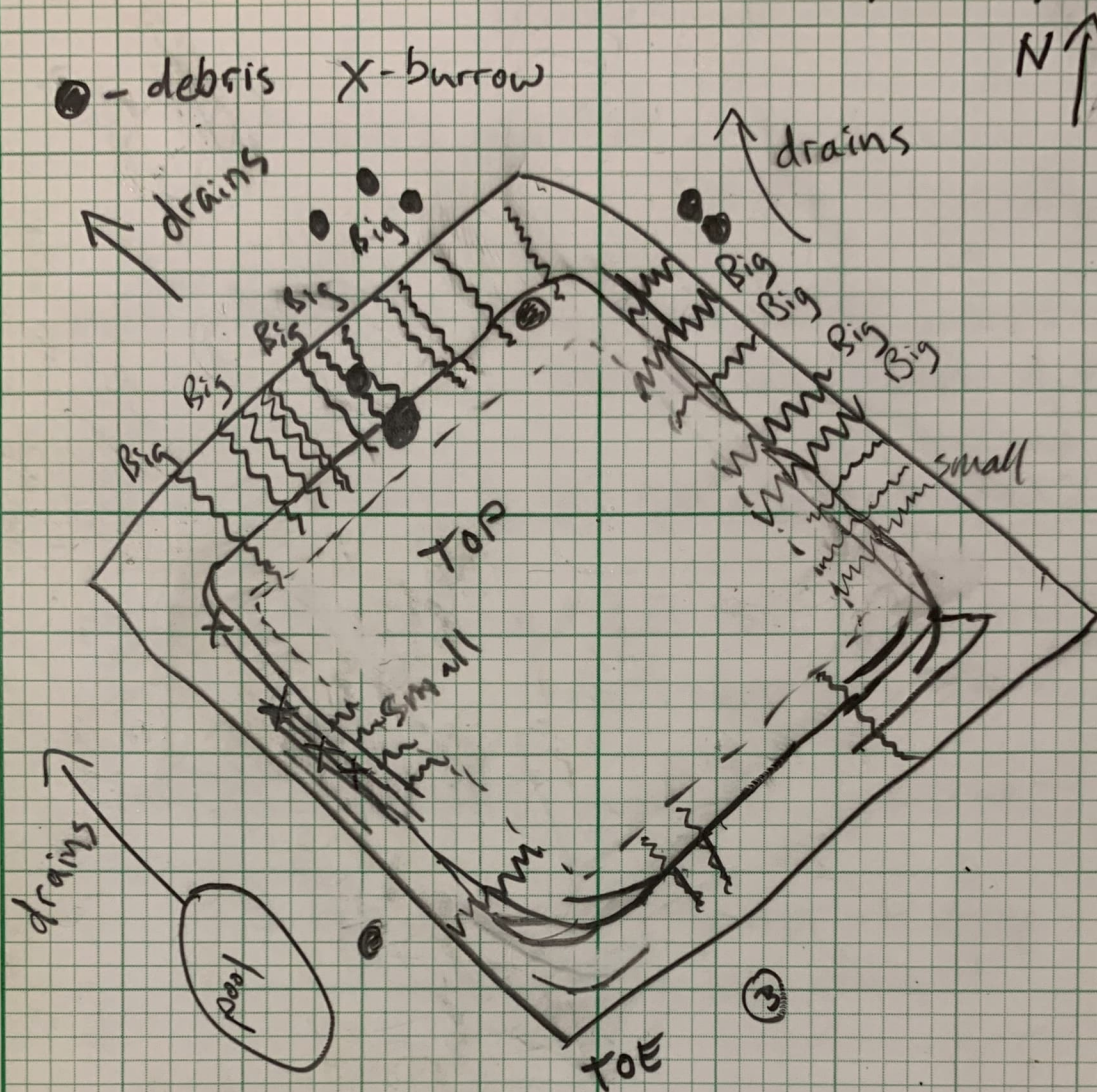 N
● - debris X - burrow
drains
drains
Big
Big
Big
Big
Big
Big
Big
Big
Big
small
TOP
small
drains
pool
3
TOE